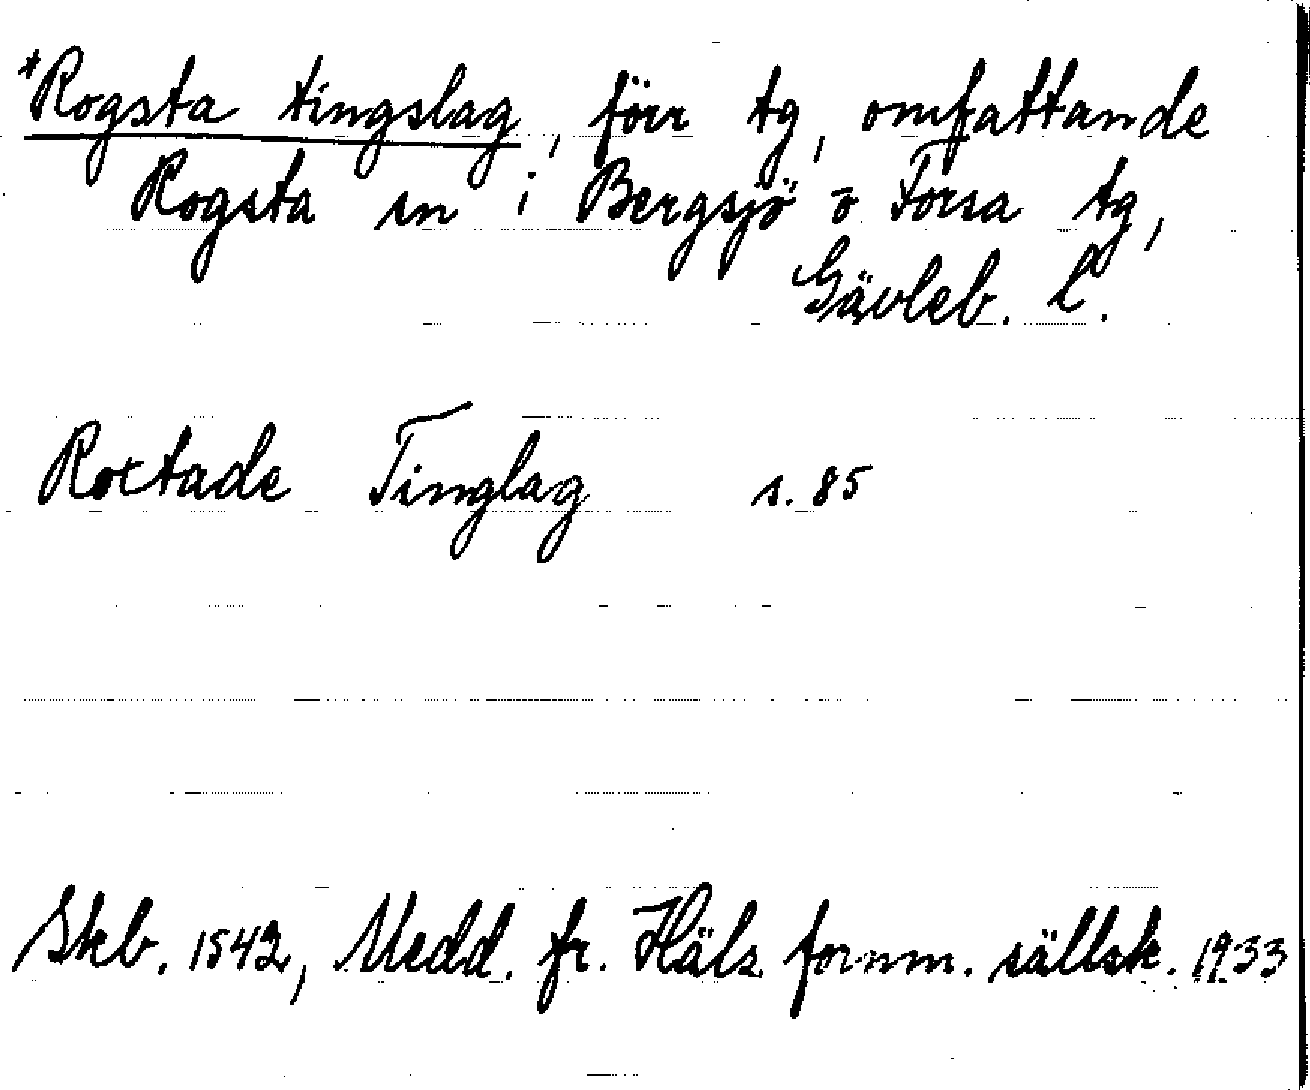 *Rogsta tingslag, förr tg, omfattande
Rogsta sn i Bergsjö o Forsa tg,
Gävleb. l.
Roctade Tinglag s. 85
Skb. 1542, Medd. fr. Häls. fornm. sällsk. 1933